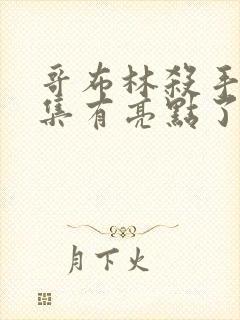 哥布林殺手
集有亮點了
月下火